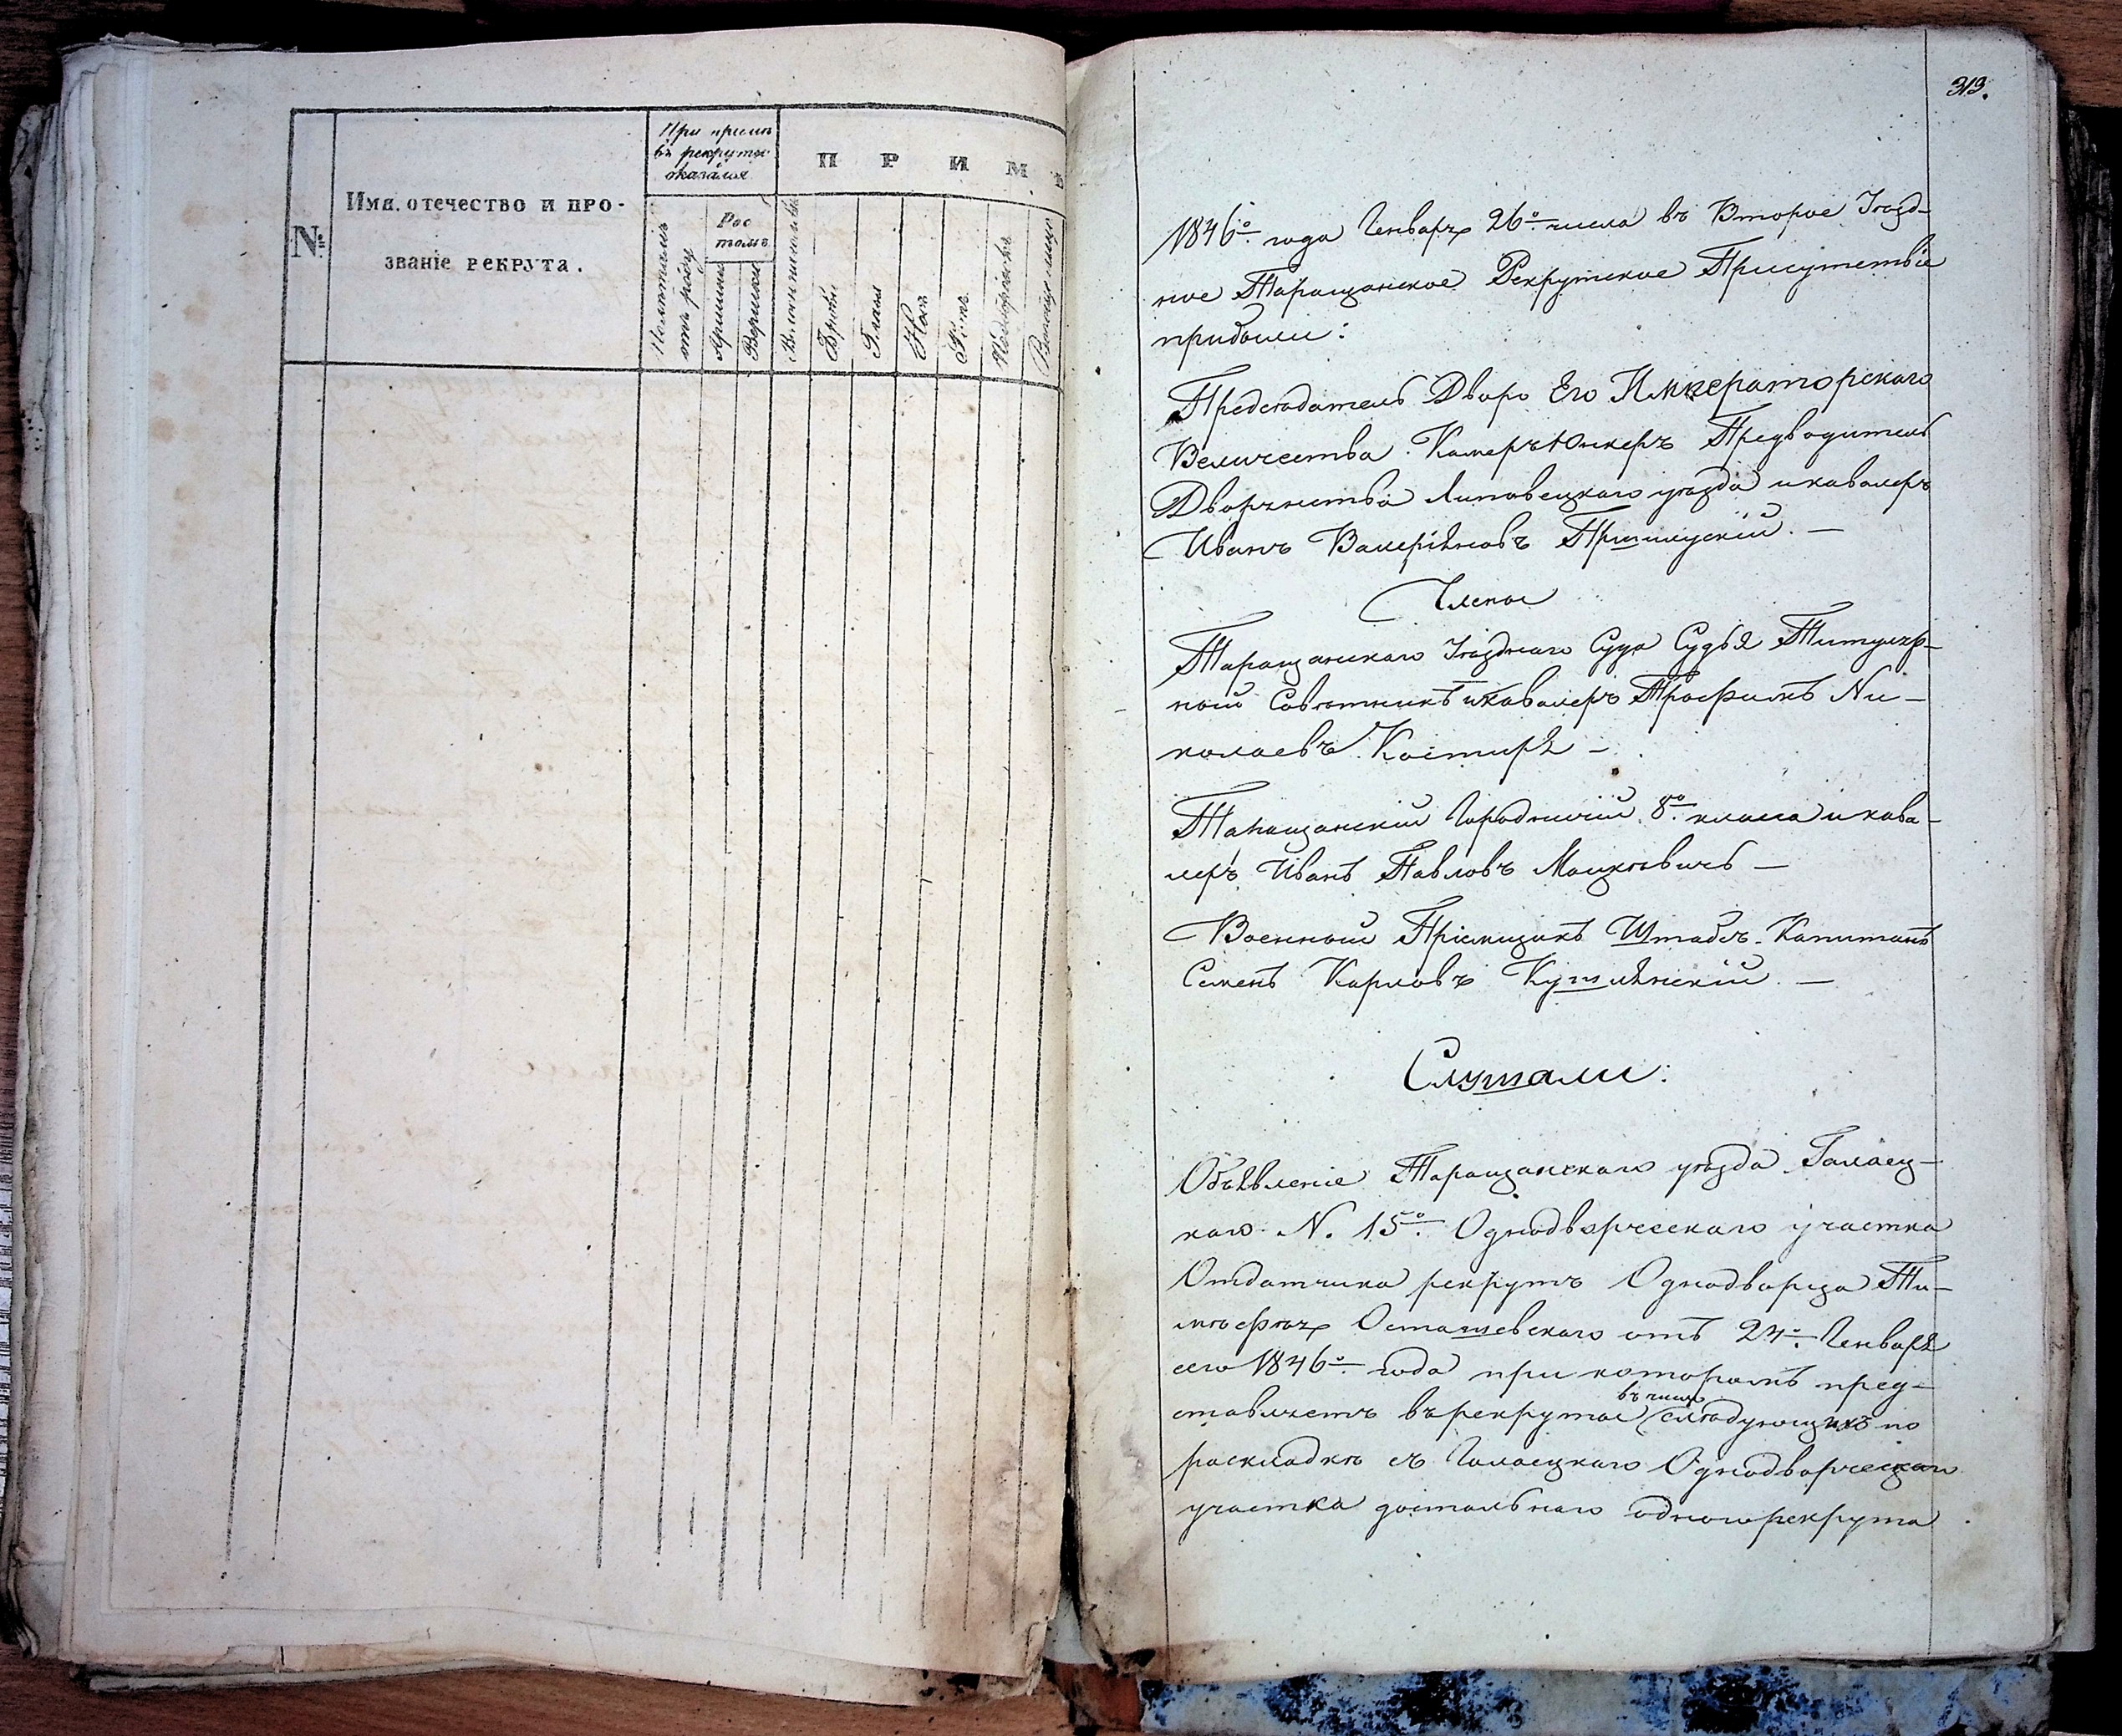 №
Имя, отечество и про-
званіе рекрута.
При пріемѣ
въ рекруты
оказался
Полнтамъ
отъ роду
Рос
томъ
Аршины
Вершки
П Р И М Ѣ
Брови
Глаза
Носъ
Ротъ
Подбородокъ
313.
1846го. года Генваря 26го. числа въ Второе Уѣзд-
ное Таращанское Рекрутское Присутствіе
прибыли:
Предсѣдатель Двора Его Императорскаго
Величества Камеръ Юнкеръ Предводитель
Дворянства Липовецкаго уѣзда и кавалеръ
Иванъ Валеріяновъ
Члены
Таращанскаго Уѣзднаго Суда Судья Титуляр-
ный Совѣтникъ и Кавалеръ Трофимъ Ни-
колаевъ Костиря —
Таращанскій Городничій 8го. класса и кава-
леръ Иванъ Павловъ Мацкевичь —
Военный Пріемщикъ Штабсъ-Капитанъ
Семенъ Карловъ Кушлянскій. —
Слушали:
Объявленіе Таращанскаго уѣзда Галаец-
каго N. 15го. Однодворческаго участка
Отдатчика рекрутъ Однодворца Ти-
мофея Осташевскаго отъ 24го. Генваря
сего 1846го. года при которомъ пред-
въ число
ставляетъ въ рекруты слѣдующихъ по
раскладкѣ съ Галаецкаго Однодворческаго
участка достальнаго одного рекрута